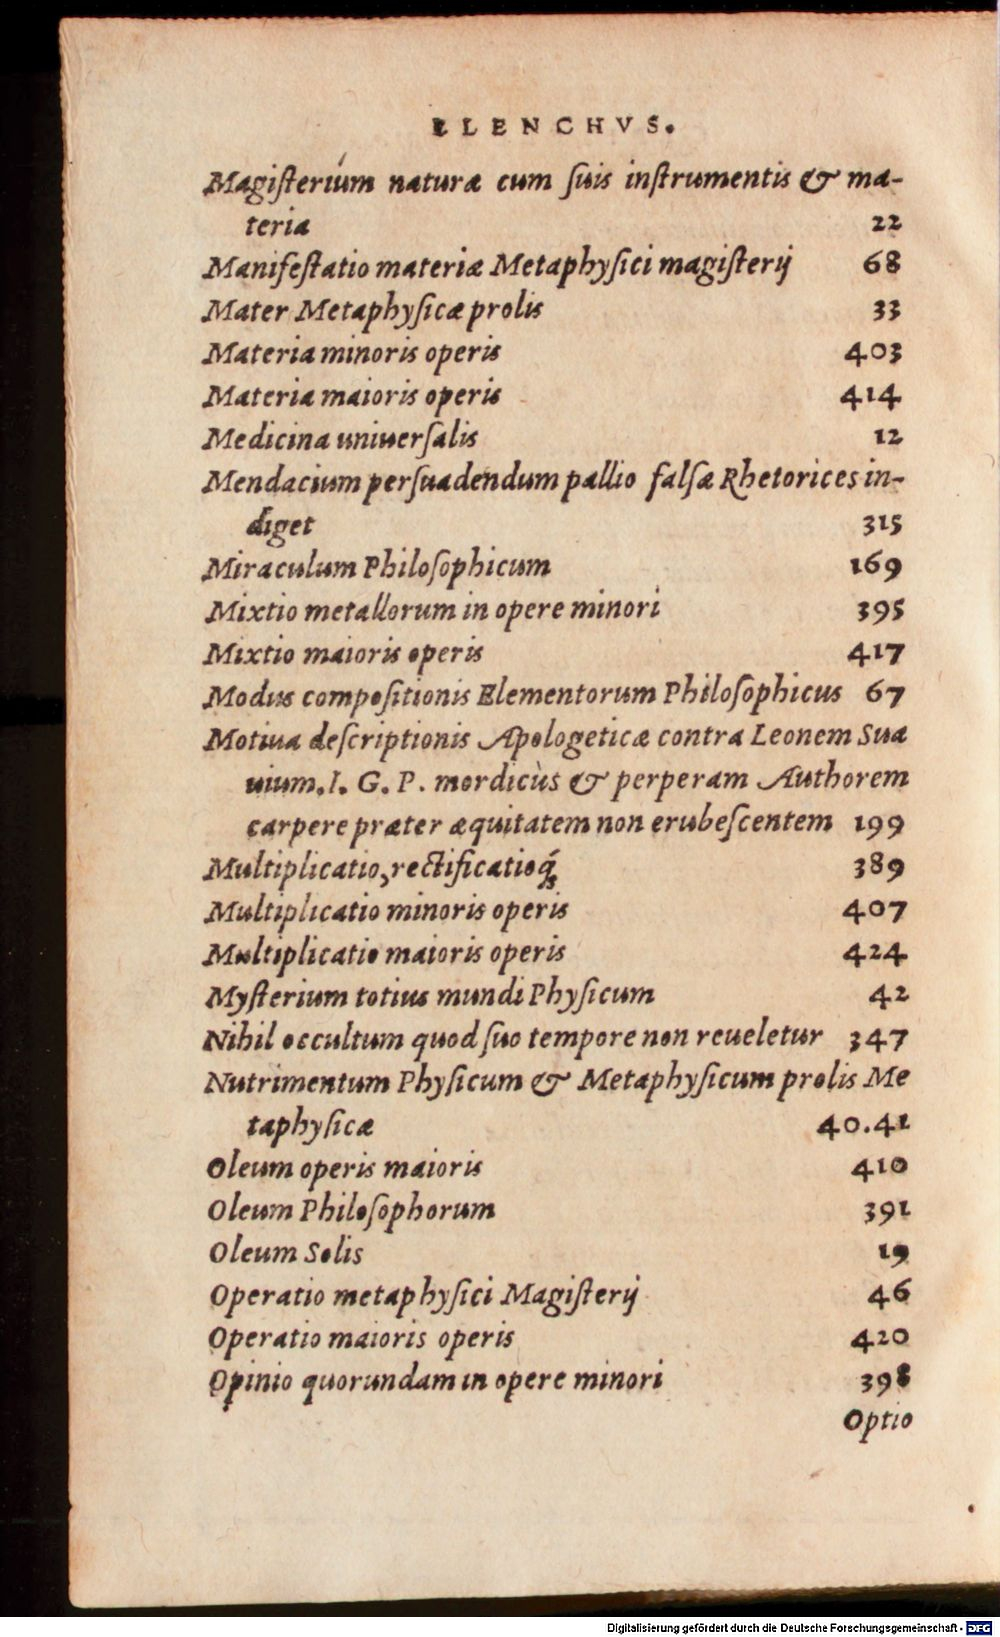 ELENCHVS.
Magiſterium naturæ cum ſuis inſtrumentis & ma-
teria 22
Manifeſtatio materiæ Metaphyſici magiſterij 68
Mater Metaphyſicæ prolis 33
Materia minoris operis 403
Materia maioris operis 414
Medicina uniuerſalis 12
Mendacium perſuadendum pallio falſæ Rhetorices in-
diget 315
Miraculum Philoſophicum 169
Mixtio metallorum in opere minori 395
Mixtio maioris operis 417
Modus compoſitionis Elementorum Philoſophicus 67
Motiua deſcriptionis Apologeticæ contra Leonem Sua
uium. I. G. P. mordicùs & perperam Authorem
carpere præter æquitatem non erubeſcentem 199
Multiplicatio, rectificatioq́; 389
Multiplicatio minoris operis 407
Multiplicatio maioris operis 424
Myſterium totius mundi Phyſicum 42
Nihil occultum quod ſuo tempore non reueletur 347
Nutrimentum Phyſicum & Metaphyſicum prolis Me
taphyſicæ 40.41
Oleum operis maioris 410
Oleum Philoſophorum 391
Oleum Solis 19
Operatio metaphyſici Magiſterij 46
Operatio maioris operis 420
Opinio quorundam in opere minori 398
Optio
Digitalisierung gefördert durch die Deutsche Forschungsgemeinschaft - DFG